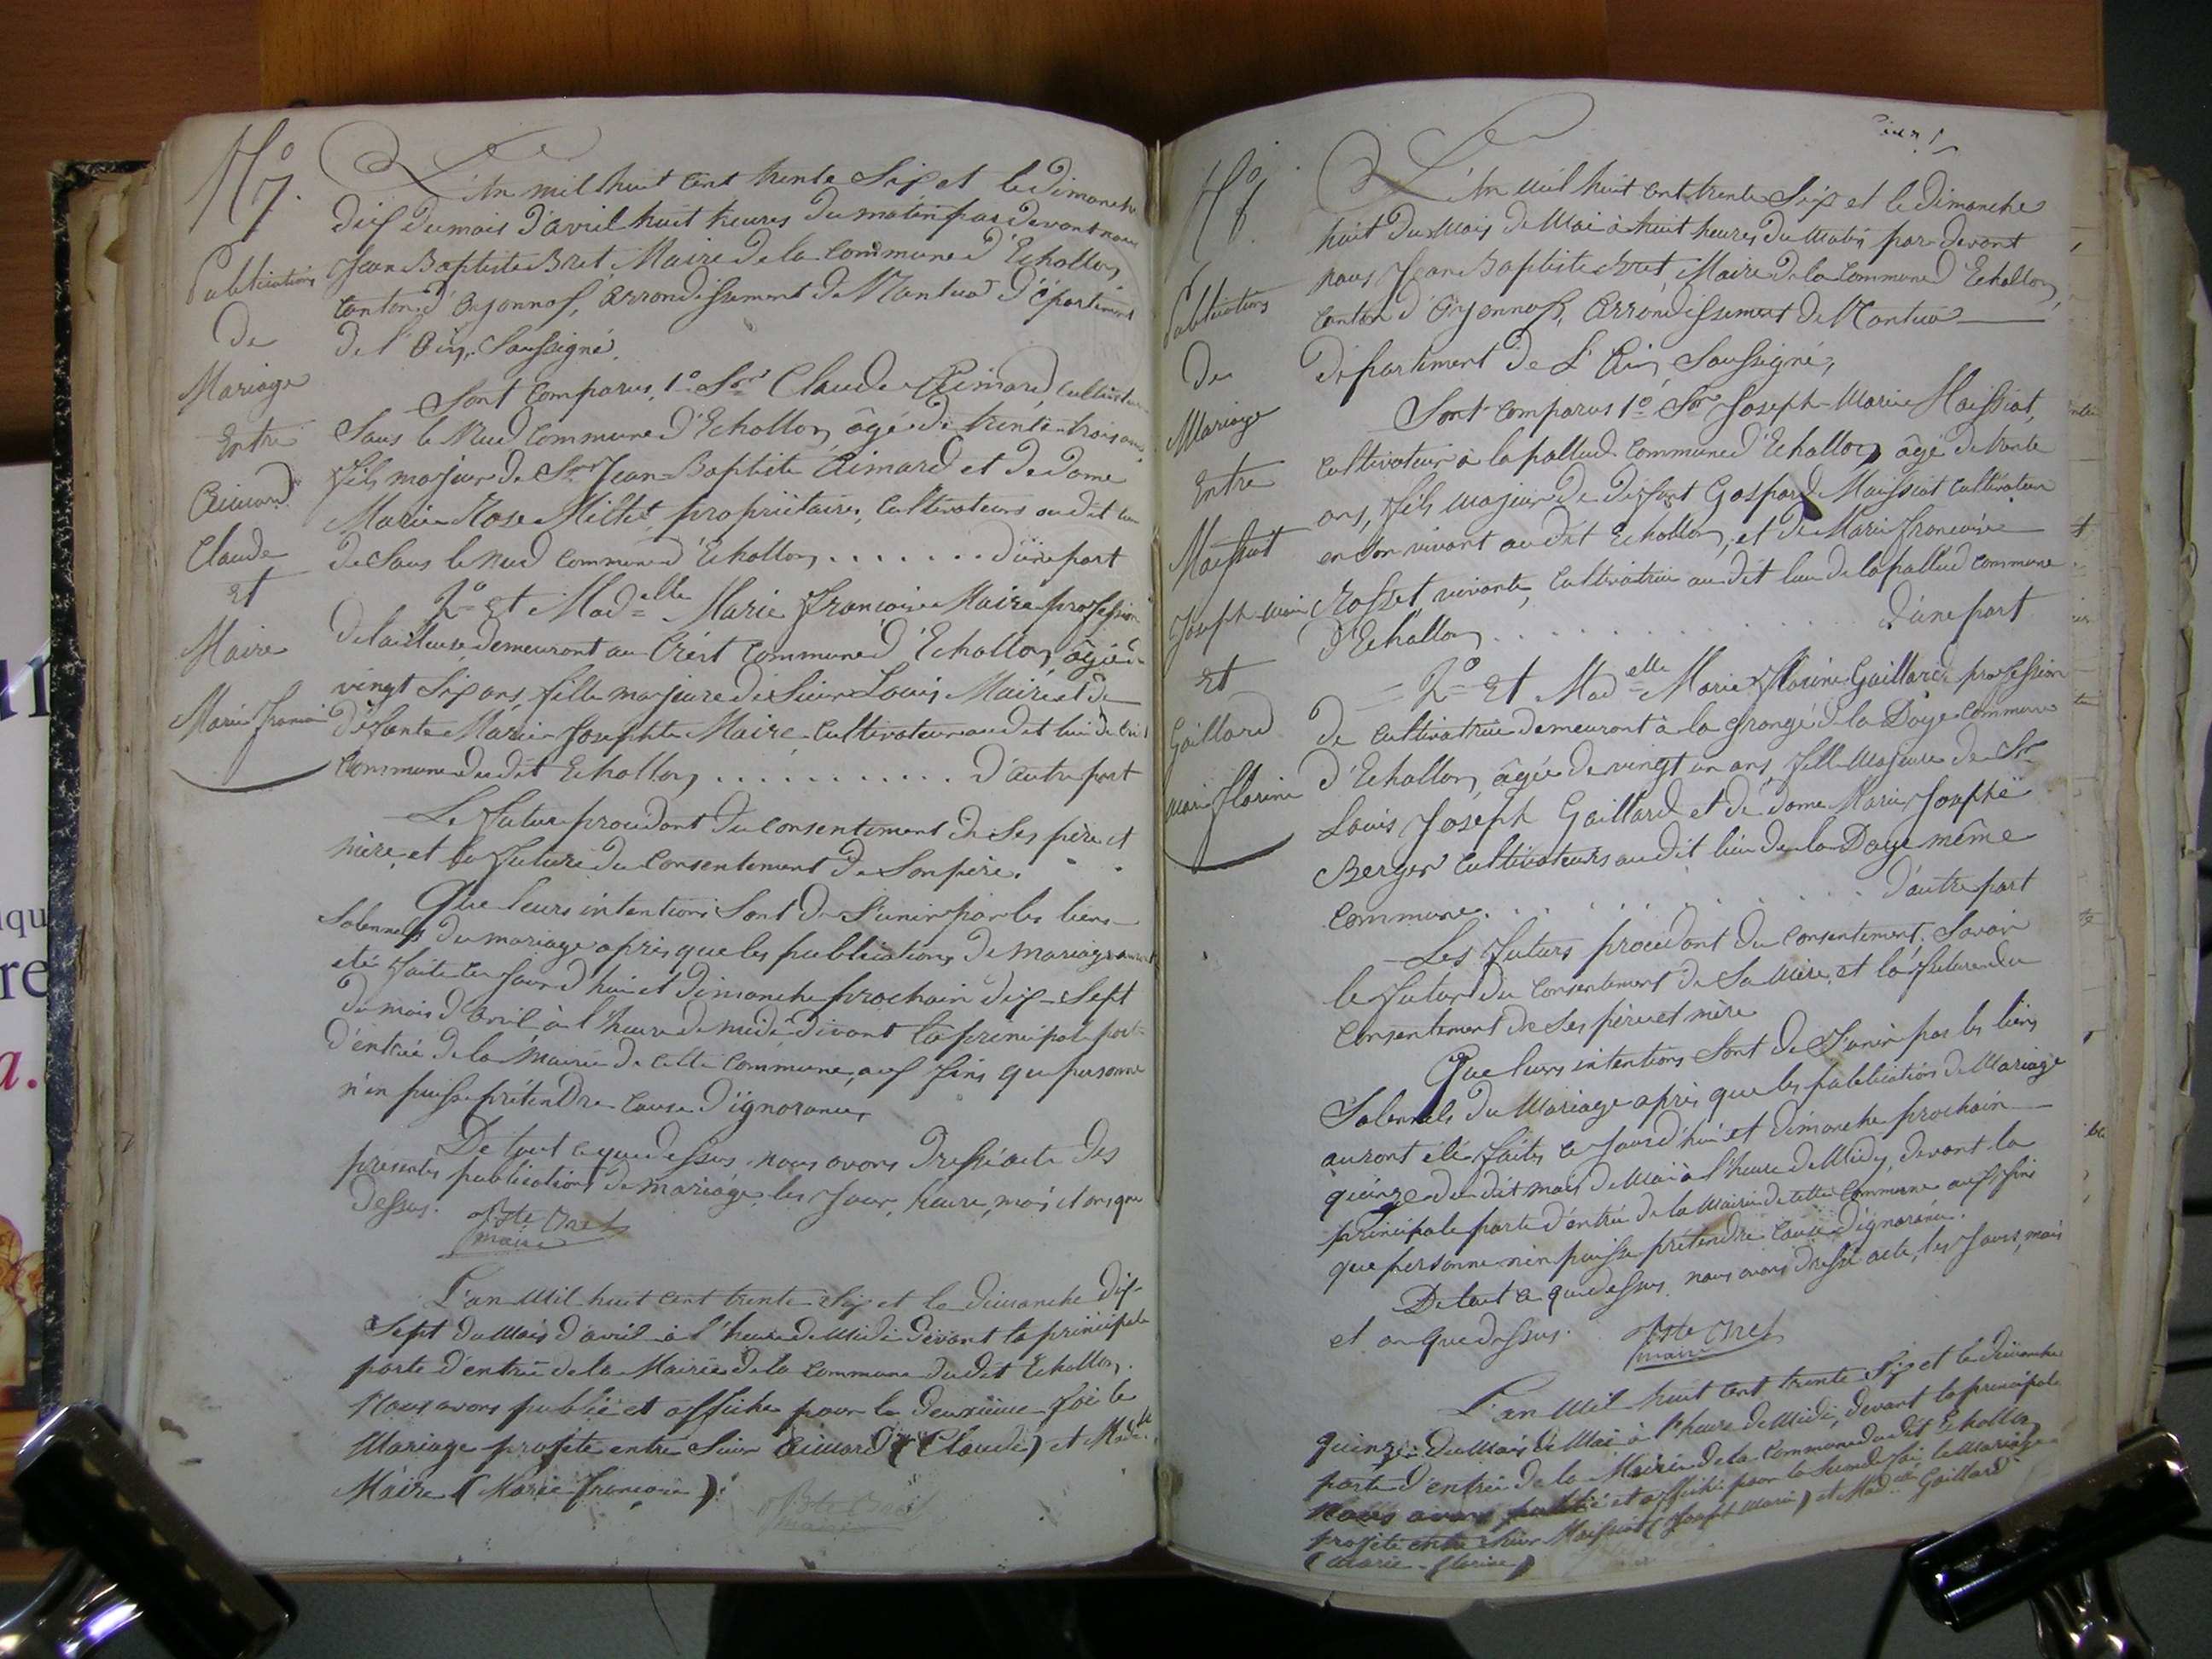 N° 7.
Publications
de
Mariage
Entre
Aimard
Claude
Et
Maire
Marie Françoise
L'An mil huit cent trente Six et le Dimanche
dix du mois d'avril huit heures du matin par devant nous
Jean Baptiste Bret Maire de la Commune d'Echallon,
Canton d'Oyonnax, arrondissement de Nantua département
de l'Ain, Soussigné.
Sont comparus, 1° Sr Claude Aimard, cultivateur
Sous le Nud commune d'Echallon, âgé de trente-trois ans
fils majeur de Sr Jean-Baptiste Aimard et de dame
Marie Rose Millet, propriétaires, cultivateurs au dit lieu
de Sous le Nud commune d'Echallon, . . . . . . . d'une part
2° Et Mad.elle Marie Françoise Maire profession
de tailleuse, demeurant au Crêt Commune d'Echallon, âgée de
vingt Six ans, fille majeure de Sieur Louis Maire et de
défunte Marie Josephte Maire cultivateur au dit lieu du Crêt
Commune du dit Echallon, . . . . . . . . . . . d'autre part
Le Futur procédant du consentement de Ses père et
mère, et la Future du consentement de Son père.
Que leurs intentions Sont de S'unir par les liens
Solennels du mariage après que les publications de mariage auront
été faites ce jourd'hui et Dimanche prochain dix-Sept
du mois d'avril à l'heure de midi devant la principale porte
d'entrée de la Mairie de cette Commune, aux fins que personne
n'en puisse prétendre cause d'ignorance,
De tout ce que dessus nous avons dressé acte des
présentes publications de mariage, les Jour, heure, mois et an que
dessus. Bte Bret
maire
L'an Mil huit cent trente Six et le dimanche dix-
Sept du Mois d'avril à l'heure de Midi devant la principale
porte d'entrée de la Mairie de la Commune du dit Echallon,
Nous avons publié et affiché pour la deuxième fois le
Mariage projeté entre Sieur Aimard (Claude) et Madelle
Maire (Marie Françoise).
Bte Bret
maire
N° 8.
Publications
de
Mariage
Entre
Maissiat
Joseph-Marie
Et
Gaillard
Marie Florine
L'An Mil huit cent trente Six et le Dimanche
huit du Mois de Mai à huit heures du Matin par-devant
nous Jean Baptiste Bret, Maire de la Commune d'Echallon,
Canton d'Oyonnax, Arrondissement de Nantua
département de L'Ain, Soussigné,
Sont comparus 1° Sr Joseph-Marie Maissiat,
cultivateur à la pallud Commune d'Echallon, âgé de trente
ans, fils majeur de défunt Gaspard Maissiat cultivateur
en Son vivant au dit Echallon, et de Marie Françoise
Rosset, vivante, Cultivatrice au dit lieu de la pallud commune
d'Echallon, . . . . . . . . . . . . d'une part
2° Et Mad.elle Marie Florine Gaillard profession
de cultivatrice demeurant à la grange de la Doye commune
d'Echallon, âgée de vingt un ans, fille Majeure de Sr
Louis Joseph Gaillard et de dame Marie Josephë
Berger cultivateurs au dit lieu de la Doye même
commune. . . . . . . . . . . . . d'autre part
Les Futurs procédant du consentement, Savoir
le Futur du consentement de Sa Mère, et la Future du
consentement de Ses père et mère
Que leurs intentions Sont de S'unir par les liens
Solennels du Mariage après que les publications de Mariage
auront été faites ce Jourd'hui et dimanche prochain
quinze du dit mois de Mai à l'heure de Midy, devant la
principale porte d'entrée de la Mairie de cette Commune aux fins
que personne n'en puisse prétendre cause d'ignorance.
De tout ce que dessus nous avons dressé acte, les Jours, mois
et an que dessus. Bte Bret
maire
L'an Mil huit cent trente Six et le dimanche
quinze du Mois de Mai à l'heure de Midi, devant la principale
porte d'entrée de la Mairie de la Commune du dit Echallon
Nous avons publié et affiché pour la Seconde fois le Mariage
projeté entre Sieur Maissiat (Joseph Marie) et Mad.elle Gaillard
(Marie-florine)